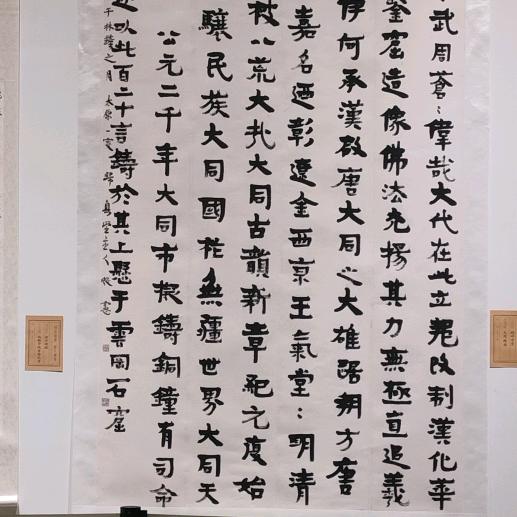 武周蒼：偉哉大代在此立邦改制漢化華
鑿窟造像佛法光揚其力無極直追羲
伊何承漢啟唐大同之大雄踞朔方唐
嘉名迺彰遼金西京王氣堂：明清
被八荒大哉大同古韻新章紀元復始
驤民族大同國祚無疆世界大同天
公元二千年大同市擬鑄銅鐘有司命
以此百二十言鑄於其上懸于雲岡石窟
林鐘之月 太原